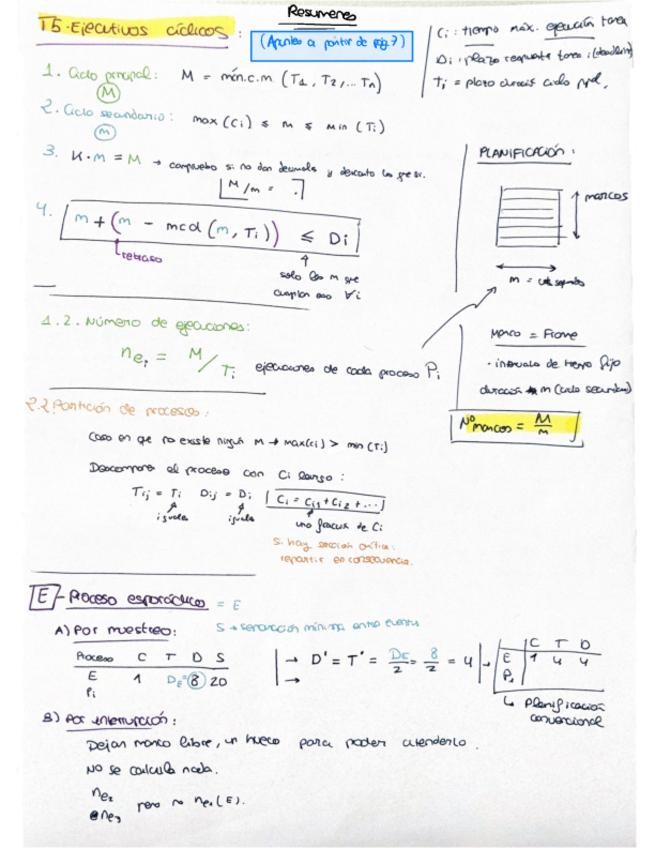 Resumenes
T5-Ejecutivos cíclicos:
(Apuntes a partir de pág. 7)
Ci: tiempo máx. ejecución tarea
Di: plazo respuesta tarea i (deadline)
Ti = plazo duración ciclo ppal.
1. Ciclo principal: M = mín.c.m (T1, T2, ... Tn)
(M)
2. Ciclo secundario: max (Ci) ≤ m ≤ min (Ti)
(m)
3. K·m = M → compruebo si no dan decimales y descarto los que sí.
M/m = ?
4. m + (m - mcd (m, Ti)) ≤ Di
retraso
solo los m que
cumplan eso ∀i
PLANIFICACIÓN:
marcos
m =
Marco = Frame
· intervalo de tiempo fijo
duración m (ciclo secundario)
Nº marcos = M/m
1.2. Número de ejecuciones:
nei = M/Ti ejecuciones de cada proceso Pi
2.2 Partición de procesos:
Caso en que no existe ningún m → max(ci) > min (Ti)
Descompone el proceso con Ci largo:
Tij = Ti Dij = Di Ci = Ci1 + Ci2 + ...
iguales iguales una fracción de Ci
Si hay sección crítica:
repartir en consecuencia.
E - Proceso esporádico = E
A) Por muestreo: S → separación mínima entre eventos
Proceso C T D S
E 1 DE=8 20
Pi
→ D' = T' = DE/2 = 8/2 = 4
→
C T D
E 1 4 4
Pi
↳ Planificación
convencional
B) Por interrupción:
Dejan marco libre, un hueco para poder atenderlo.
No se calcula nada.
ne2
ne3 pero no ne1 (E).